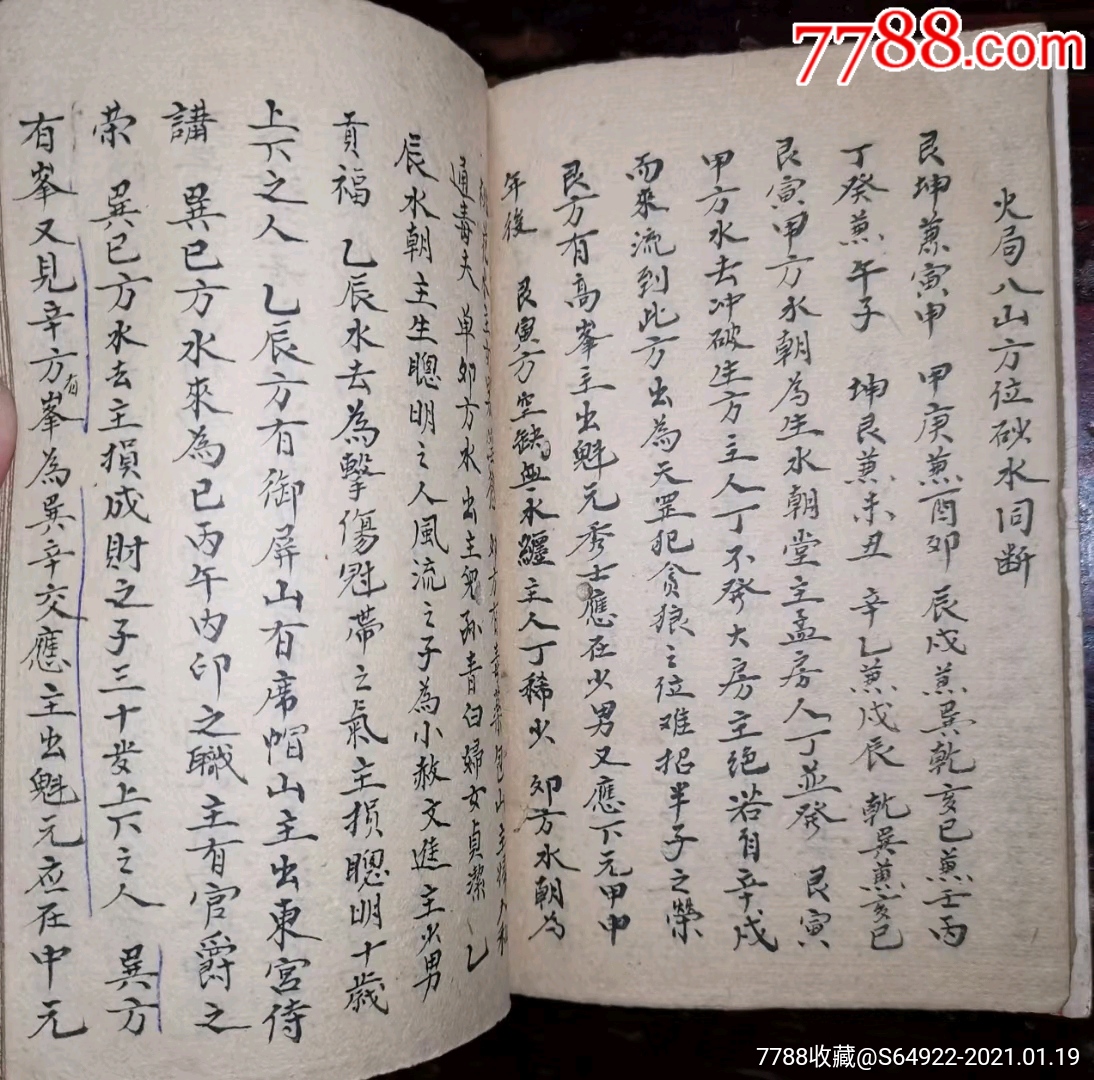 7788.com
火局八山方位砂水同断
艮坤兼寅申 甲庚兼酉卯 辰戍兼巽乾亥巳兼壬丙
丁癸兼午子 坤艮兼未丑 辛乙兼戍辰 乾巽兼亥巳
艮寅甲方水朝為生水朝堂主孟房人丁並癸 艮寅
甲方水去冲破生方主人丁不癸大房主绝若自辛戍
而來流到此方出為天罡犯贪狼之位难招半子之榮
艮方有高峯主出魁元秀士應在少男又應下元甲申
年後 艮寅方空缺血水纏主人丁稀少 卯方水朝為
通毒夫 单卯方水出主兒孙青白婦女貞潔 乙
辰水朝主生聰明之人風流之子為小赦文進主少男
貢福 乙辰水去為擊傷冠帶之氣主損聰明十歲
上下之人 乙辰方有御屏山有席帽山主出東宮侍
講 巽巳方水來為巳丙午内印之職主有官爵之
荣 巽巳方水去主損成財之子三十岁上下之人 巽方
有峯又見辛方有峯為巽辛交應主出魁元应在中元
7788收藏@S64922-2021.01.19